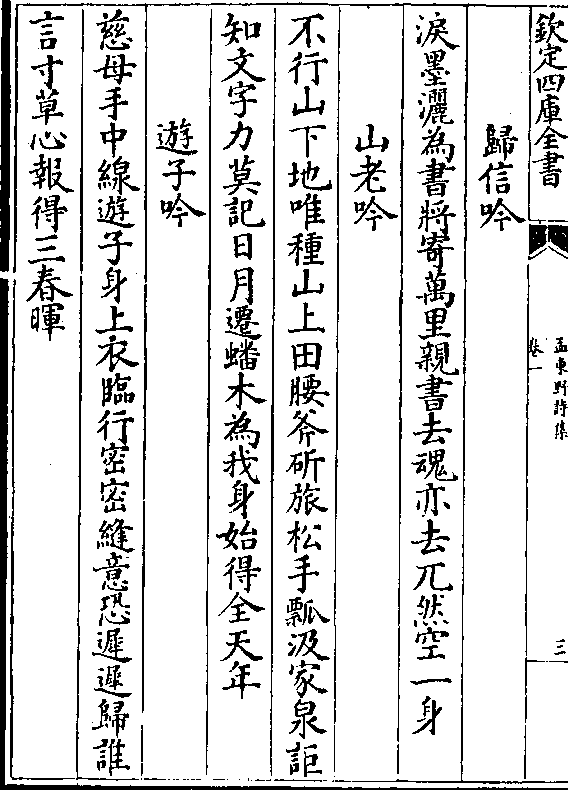 欽定四庫全書
孟東野詩集
卷一
三
歸信吟
淚墨灑為書將寄萬里親書去魂亦去兀然空一身
山老吟
不行山下地唯種山上田腰斧斫旅松手瓢汲家泉詎
知文字力莫記日月遷蟠木為我身始得全天年
遊子吟
慈母手中線遊子身上衣臨行密密縫意恐遲遲歸誰
言寸草心報得三春暉